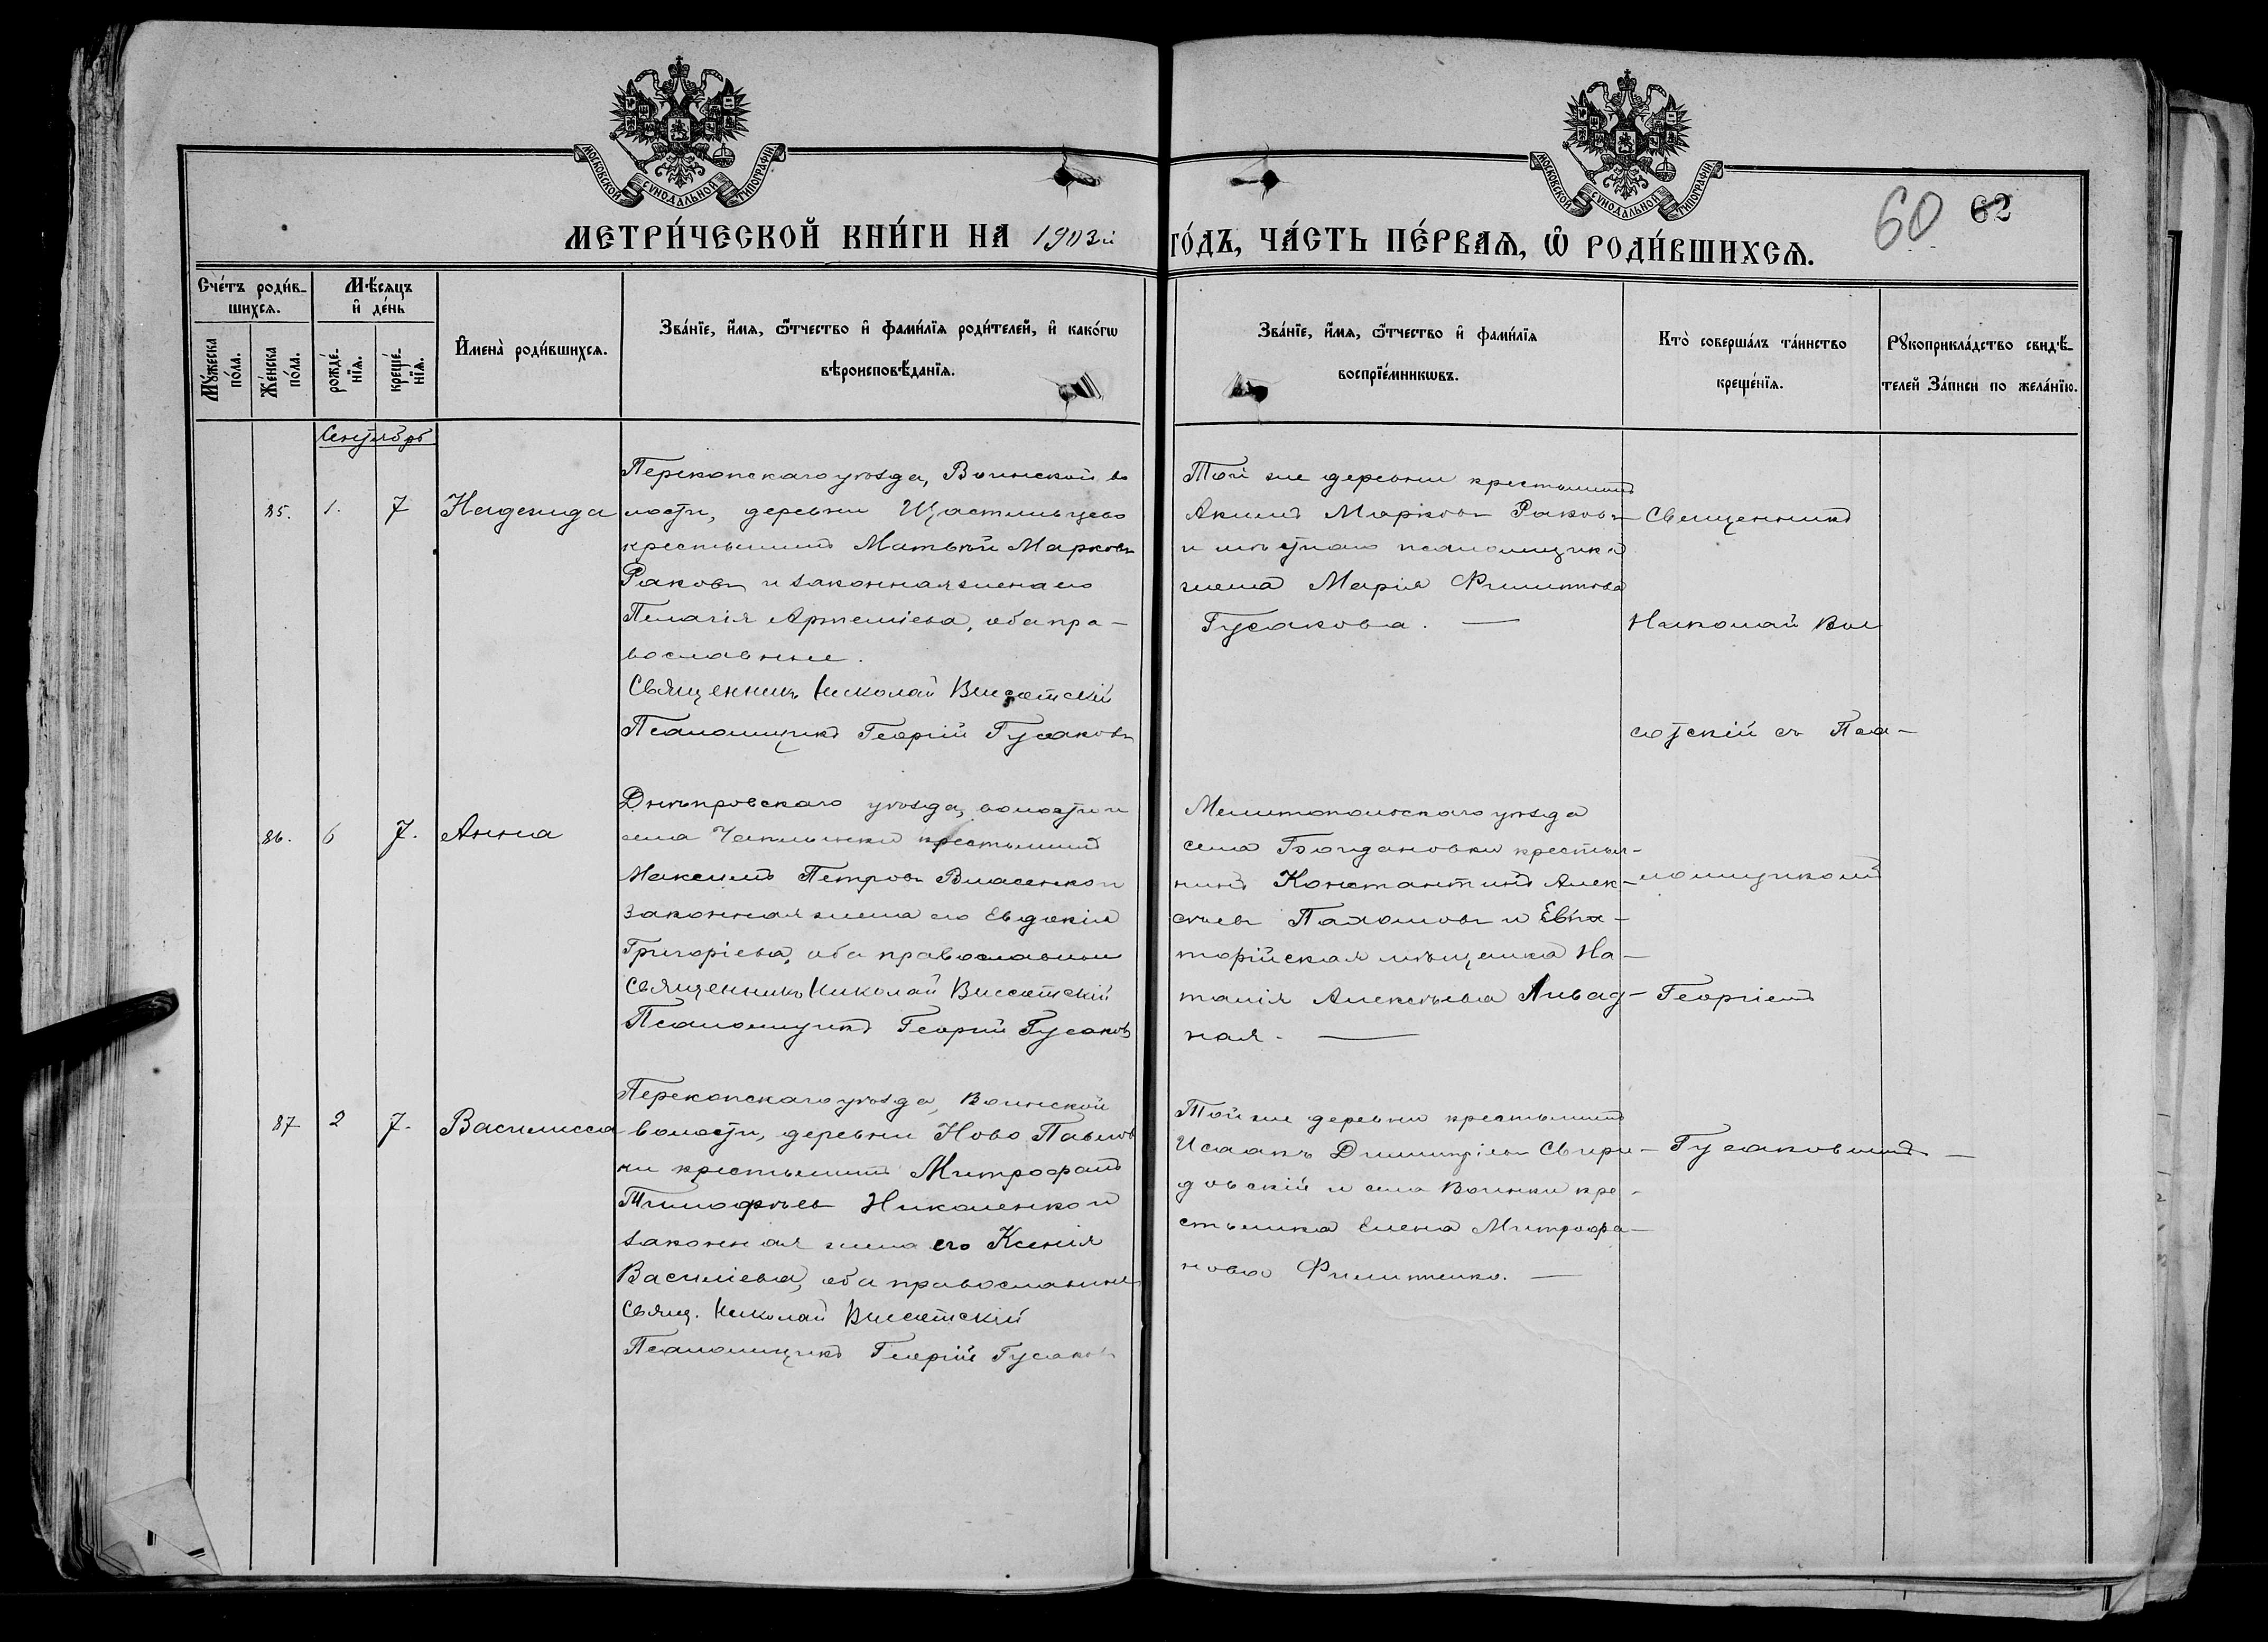 МОСКОВСКОЙ СѴНОДАЛЬНОЙ ТИПОГРАФІИ
МОСКОВСКОЙ СѴНОДАЛЬНОЙ ТИПОГРАФІИ
60 62
МЕТРИ́ЧЕСКОЙ КНИ́ГИ НА 1903й
ГО́ДЪ, ЧА́СТЬ ПЕ́РВАѦ, Ѡ҆ РОДИ́ВШИХСѦ.
Сче́тъ роди́в-
шихсѧ.
Мѣ́сяцъ
и҆ де́нь
Мꙋ́жеска
по́ла.
Же́нска
по́ла.
рожде́-
нїѧ.
креще́-
нїѧ.
И҆мена̀ роди́вшихсѧ.
Зва́нїе, и҆́мѧ, ѻ҆́тчество и҆ фами́лїѧ роди́телей, и҆ како́гѡ
вѣроисповѣ́данїѧ.
Зва́нїе, и҆́мѧ, ѻ҆́тчество и҆ фами́лїѧ
воспрїе́мникѡвъ.
Кто̀ соверша́лъ та́инство
креще́нїѧ.
Рꙋкоприкла́дство свидѣ́-
телей За́писи по жела́нїю.
Сентябрь
85. 1. 7 Надежда
Перекопскаго уѣзда, Воинской во
лости, деревни Щастливцево
крестьянинъ Матвѣй Марковъ
Раковъ и законная жена его
Пелагія Артеміева, оба пра-
вославные.
Священникъ Николай Высотскій
Псаломщикъ Георгій Гусаковъ
Той же деревни крестьянинъ
Акимъ Марковъ Раковъ
и мѣстнаго псаломщика
жена Марія Филиппова
Гусакова. —
Священникъ
Николай Вы
сотскій съ Пса-
86. 6 7. Анна
Днѣпровскаго уѣзда, волости и
села Чаплынки крестьянинъ
Максимъ Петровъ Власенко и
законная жена его Евдокія
Григоріева, оба православные
Священникъ Николай Высотскій
Псаломщикъ Георгій Гусаковъ
Мелитопольскаго уѣзда
села Богдановки крестья-
нинъ Константинъ Алек-
сѣевъ Пахомовъ и Евпа-
торійская мѣщанка На-
талія Алексѣева Ливад-
ная. —
ломщикомъ
Георгіемъ
87 2 7. Василисса
Перекопскаго уѣзда, Воинской
волости, деревни Ново Павлов
ки крестьянинъ Митрофанъ
Тимофѣевъ Николенко и
законная жена его Ксенія
Василіева, оба православные
Свящ. Николай Высотскій
Псаломщикъ Георгій Гусаковъ
Той же деревни крестьянинъ
Исаакъ Димитріевъ Свири-
довскій и села Воинки кре-
стьянка Елена Митрофа-
нова Филипенко. —
Гусаковымъ —